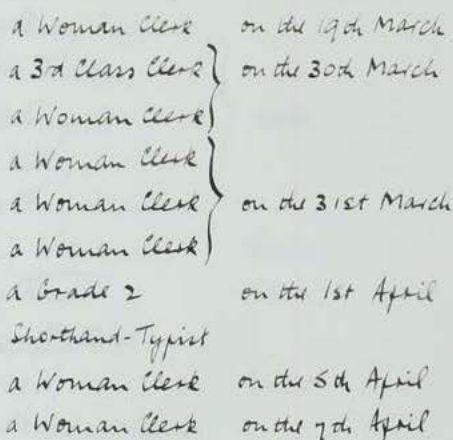 a Woman Clerk on the 19th March
a 3rd Class Clerk on the 30th March
a Woman Clerk
a Woman Clerk
a Woman Clerk on the 31st March
a Woman Clerk
a Grade 2 on the 1st April
Shorthand-Typist
a Woman Clerk on the 5th April
a Woman Clerk on the 7th April